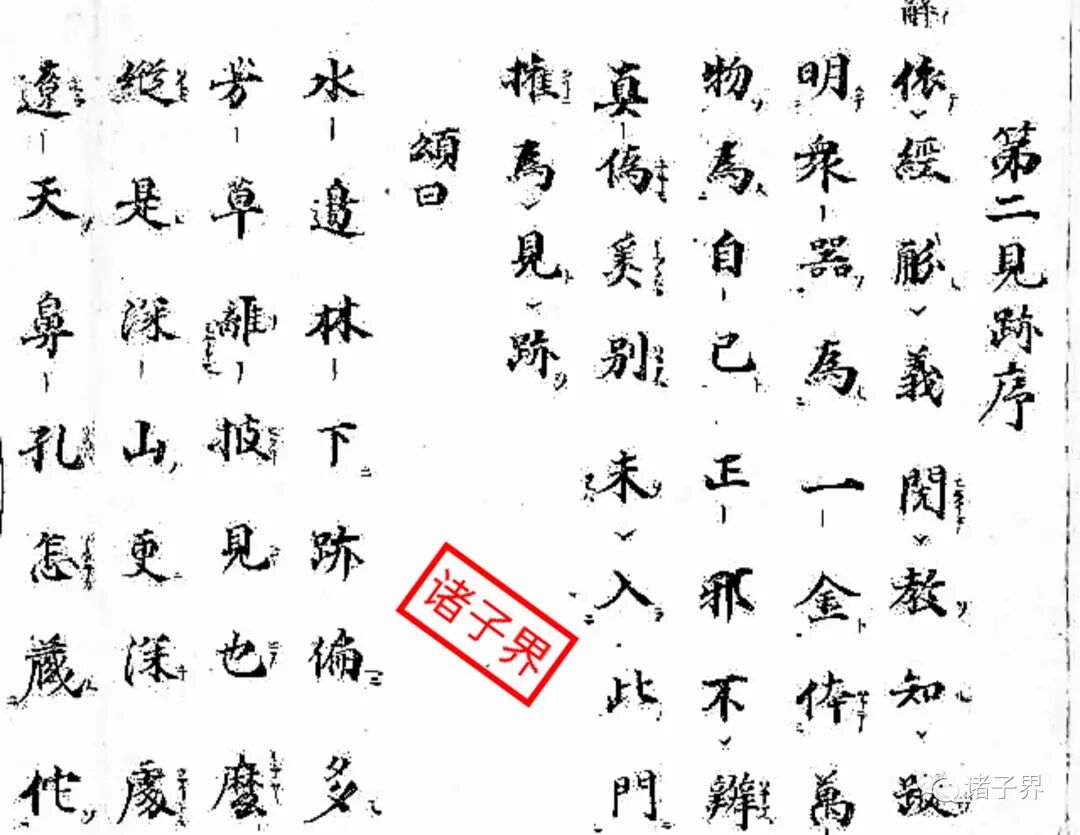 第二見跡序
解
依經解義閱教知
明衆器為一金体萬
物為自己正邪不辨
真偽奚別未入此門
權為見跡
頌曰
水邊林下跡偏多
芳草離披見也麼
縱是深山更深處
遼天鼻孔怎藏佗
诸子界
诸子界